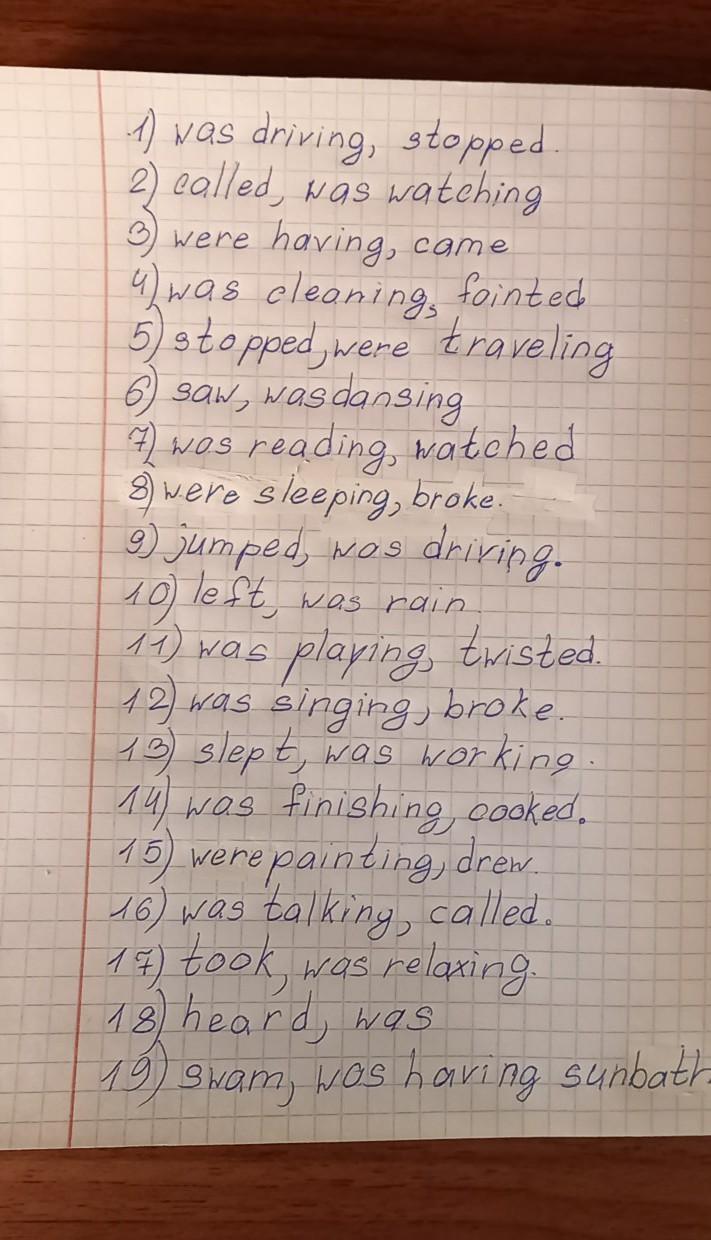 1) was driving, stopped.
2) called, was watching
3) were having, came
4) was cleaning, fointed
5) stopped, were traveling
6) saw, was dansing
7) was reading, watched
8) were sleeping, broke.
9) jumped, was driving.
10) left, was rain.
11) was playing, twisted.
12) was singing, broke.
13) slept, was working.
14) was finishing, cooked.
15) were painting, drew.
16) was talking, called.
17) took, was relaxing.
18) heard, was
19) swam, was having sunbath